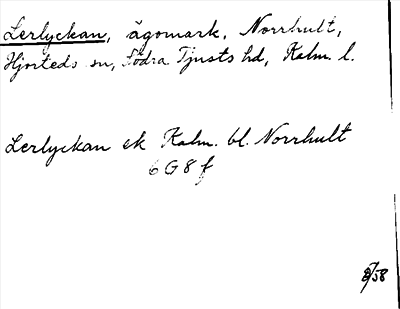 Lerlyckan, ägomark, Norrhult,
Hjorteds sn, Södra Tjusts hd, Kalm. l.
Lerlyckan ek Kalm. bl. Norrhult
6 G 8 f